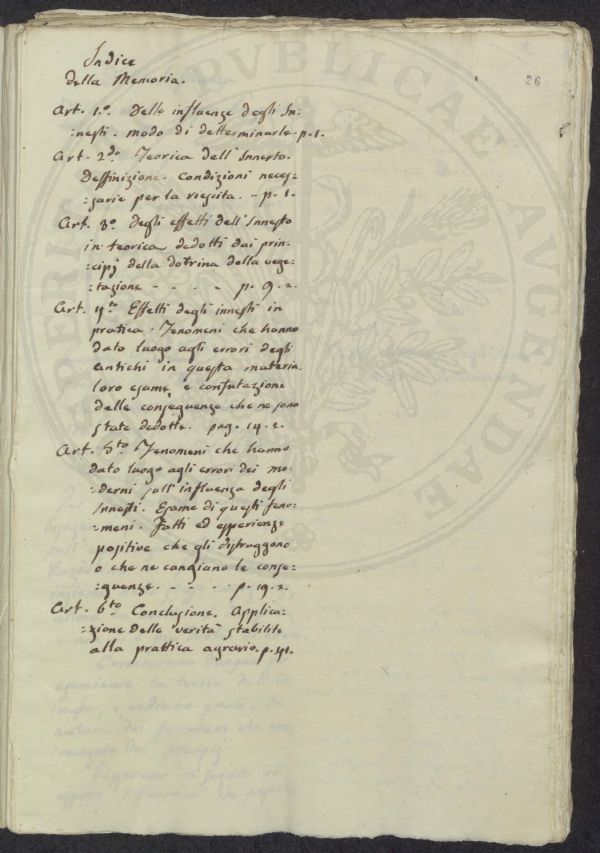 Indice
della Memoria.
26
Art. 1.º Delle influenze degli In:
:nesti. modo di detterminarle. p. 1.
Art. 2.do Teorica dell'Innesto.
Deffinizione. Condizioni neces:
:sarie per la riescita. - p. 1.
Art. 3º degli effetti dell'Innesto
in teorica dedotti dai prin:
:cipj della dotrina della vege:
:tazione - - - - p. 9. 2.
Art. 4.to Effetti degli innesti in
prattica. Fenomeni che hanno
dato luogo agli errori degli
antichi in questa materia.
loro esame e confutazione
delle conseguenze che ne sono
state dedotte. pag. 14. 2.
Art. 5.to Fenomeni che hanno
dato luogo agli errori dei mo:
:derni sull'influenza degli
Innesti. Esame di questi feno:
:meni. Fatti ed esperienze
positive che gli distruggono
o che ne cangiano le conse:
:guenze. - - - - p. 19. 2.
Art. 6.to Conclusione. Applica:
:zione delle verità stabilite
alla prattica agraria. p. 41.
PERIA PVBLICAE AVGENDAE